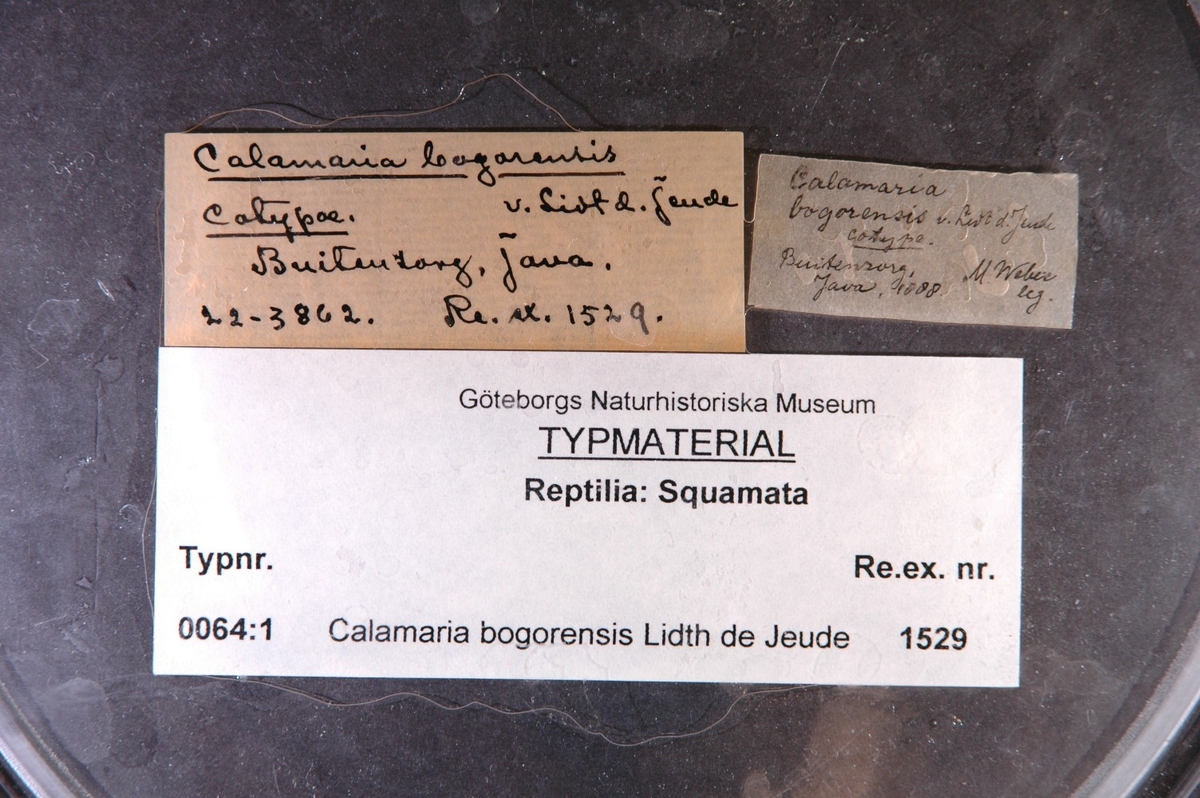 Calamaria bogorensis
Cotype. v. Lidt d. Jeude
Buitenzorg, Java.
22-3862. Re. ex. 1529.
Calamaria
bogorensis v. Lidt d. Jeude
cotype.
Buitenzorg, M Weber
Java, 1888. leg.
Göteborgs Naturhistoriska Museum
TYPMATERIAL
Reptilia: Squamata
Typnr. Re.ex. nr.
0064:1 Calamaria bogorensis Lidth de Jeude 1529